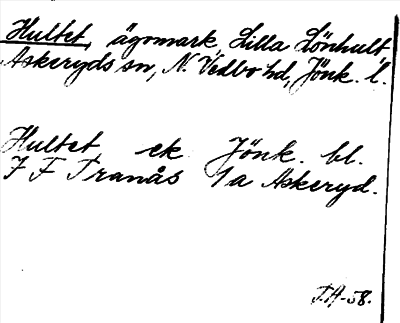 Hultet, ägomark, Lilla Lönhult
Askeryds sn, N. Vedbo hd, Jönk. l.
Hultet ek Jönk. bl.
7 F Tranås 1a Askeryd.
T.H-58.